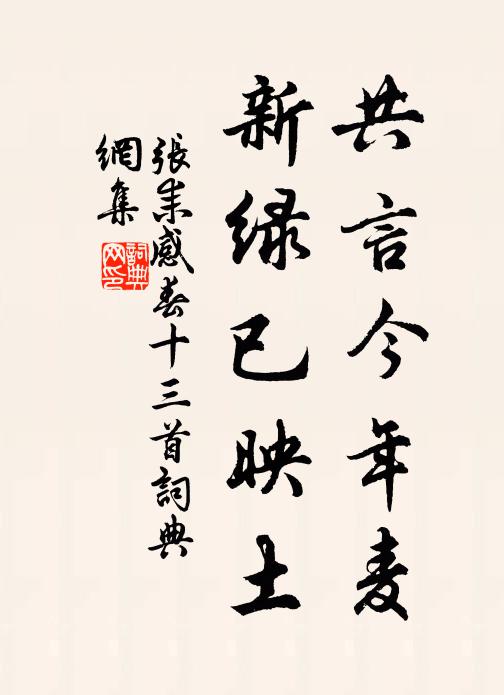 共言今年麦
新绿已映土
張耒感春十三首詞典
網集
詞典
网印